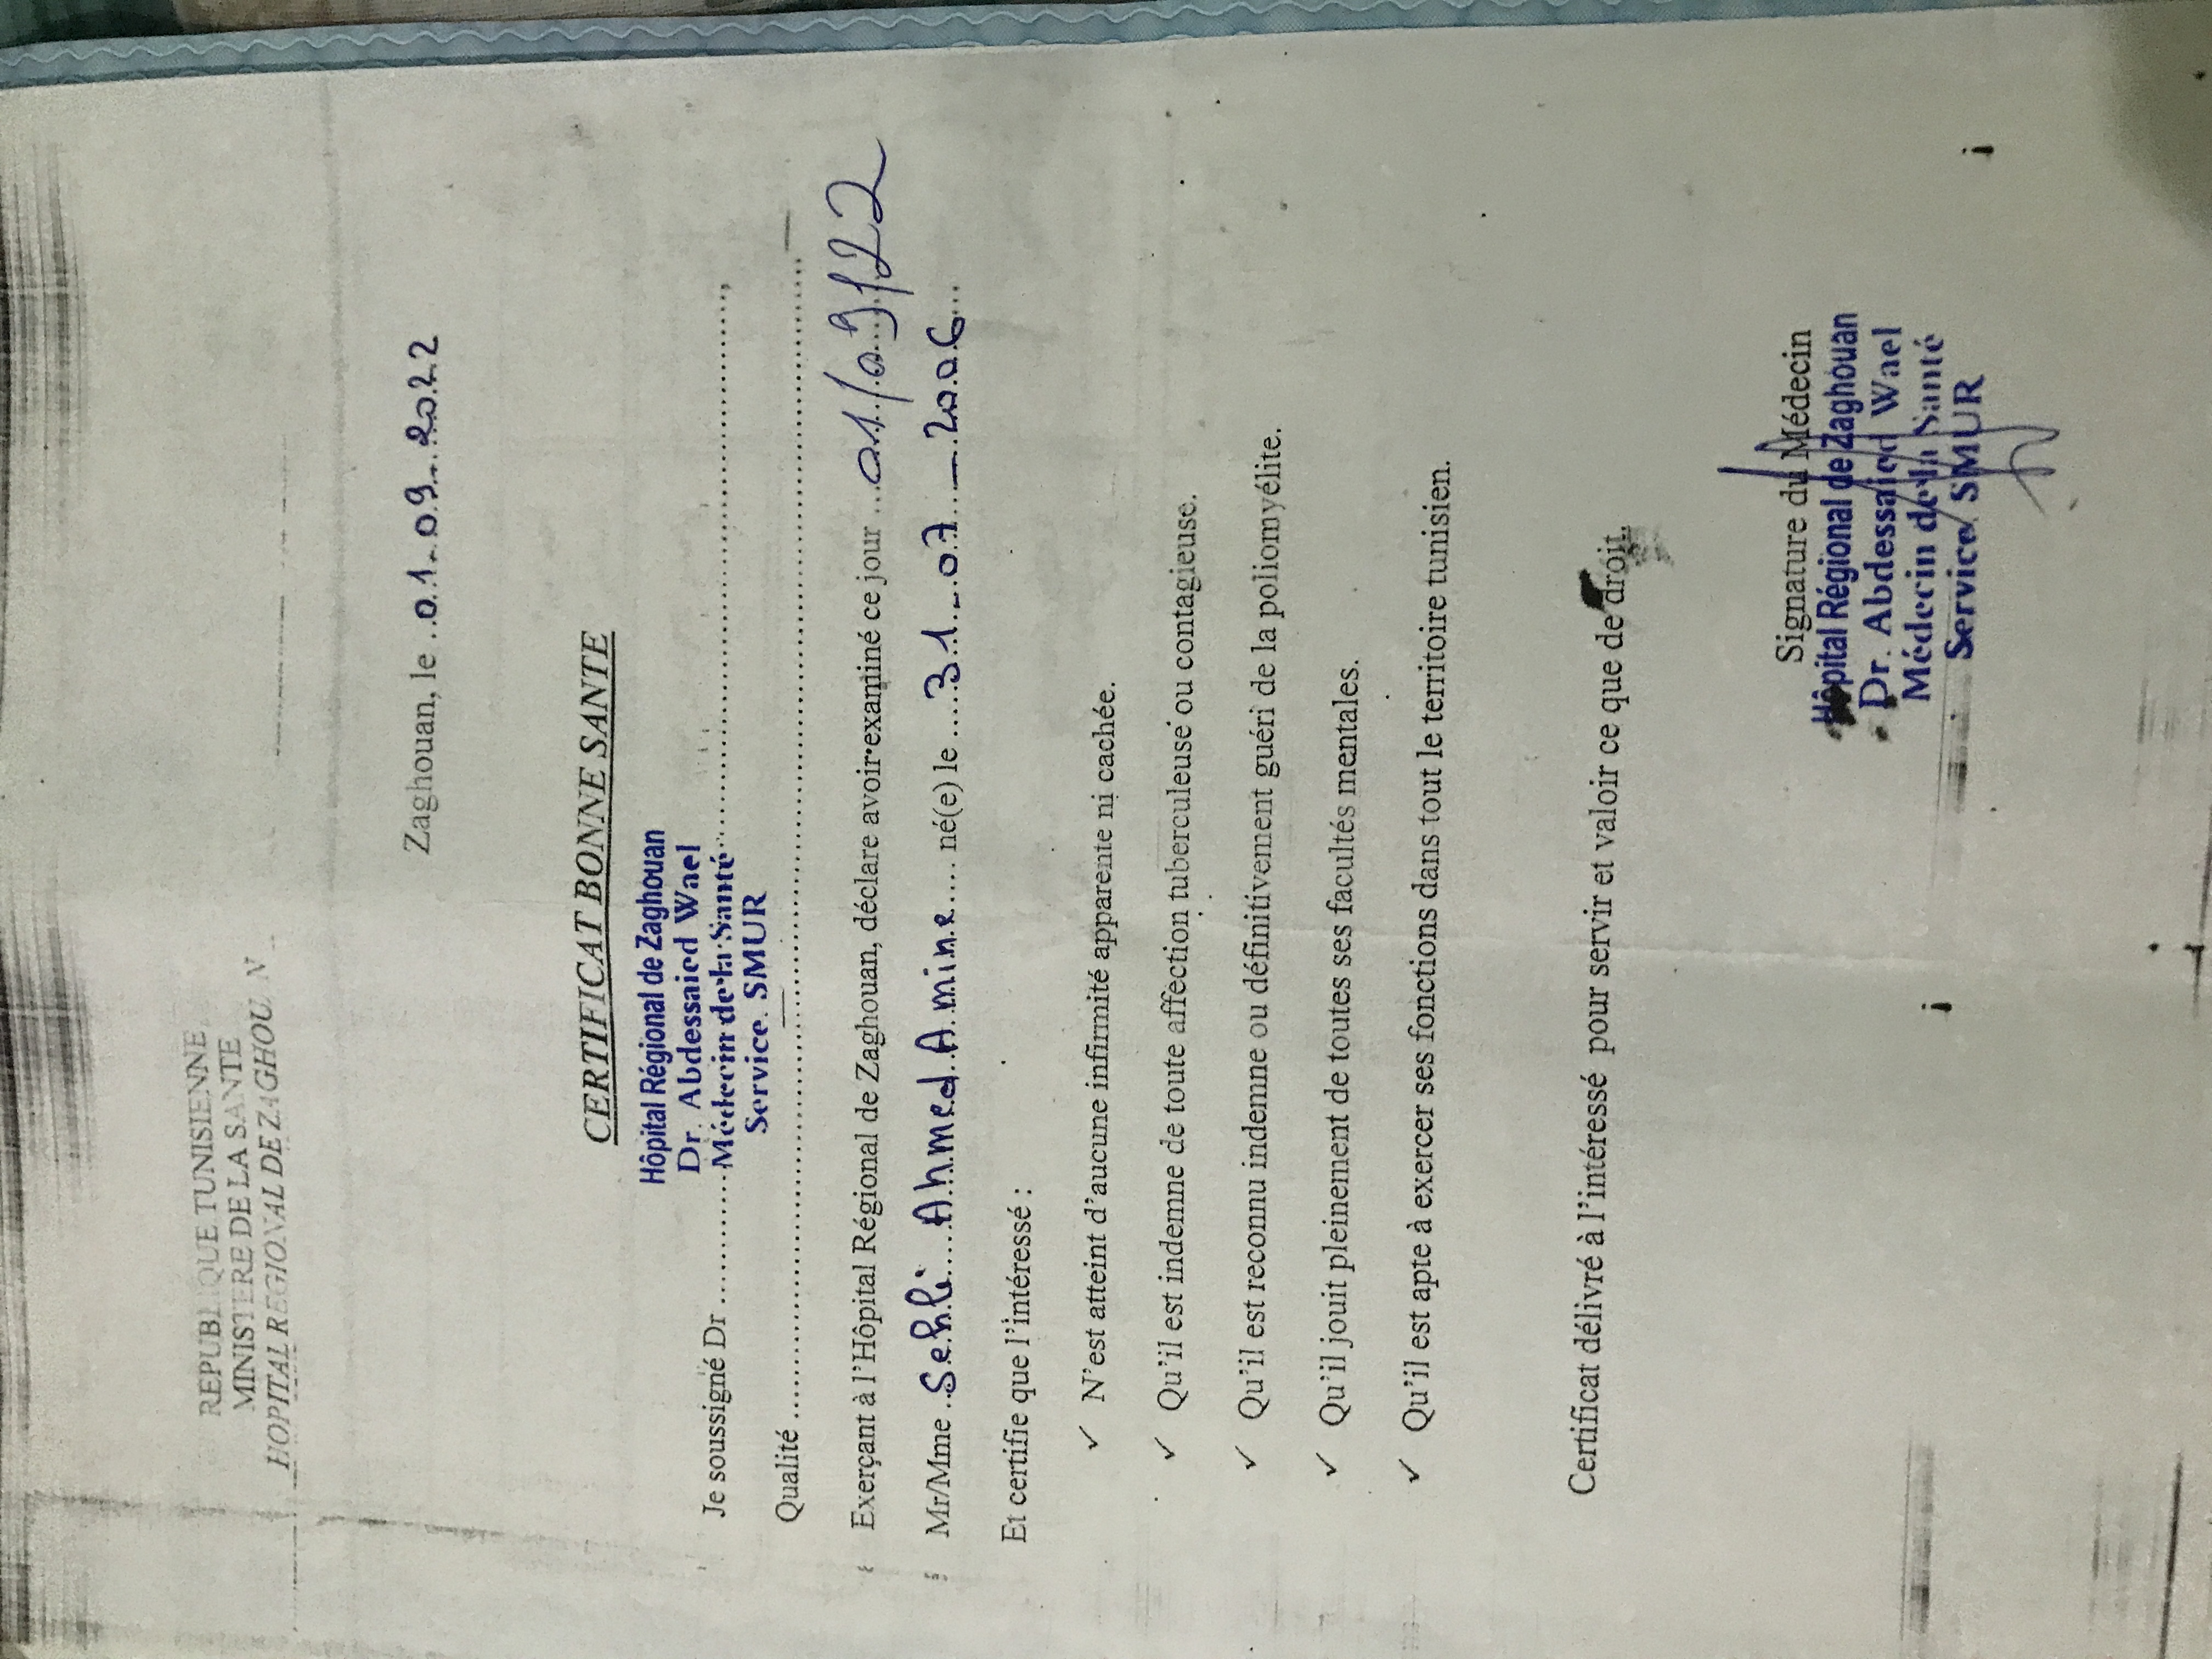 REPUBLIQUE TUNISIENNE
MINISTERE DE LA SANTE
HOPITAL REGIONAL DE ZAGHOU N
Zaghouan, le ..01-09-2022
CERTIFICAT BONNE SANTE
Hôpital Régional de Zaghouan
Dr. Abdessaied Wael
Je soussigné Dr .......... Médecin de la Santé ..........,
Service. SMUR
Qualité ..........
Exerçant à l'Hôpital Régional de Zaghouan, déclare avoir examiné ce jour ...01/09/22
Mr/Mme ..Sehli....Ahmed.Amine.... né(e) le ....31-07-2006...
Et certifie que l'intéressé :
✓ N'est atteint d'aucune infirmité apparente ni cachée.
✓ Qu'il est indemne de toute affection tuberculeuse ou contagieuse.
✓ Qu'il est reconnu indemne ou définitivement guéri de la poliomyélite.
✓ Qu'il jouit pleinement de toutes ses facultés mentales.
✓ Qu'il est apte à exercer ses fonctions dans tout le territoire tunisien.
Certificat délivré à l'intéressé pour servir et valoir ce que de droit.
Signature du Médecin
Hôpital Régional de Zaghouan
Dr. Abdessaied Wael
Médecin de la Santé
Service. SMUR